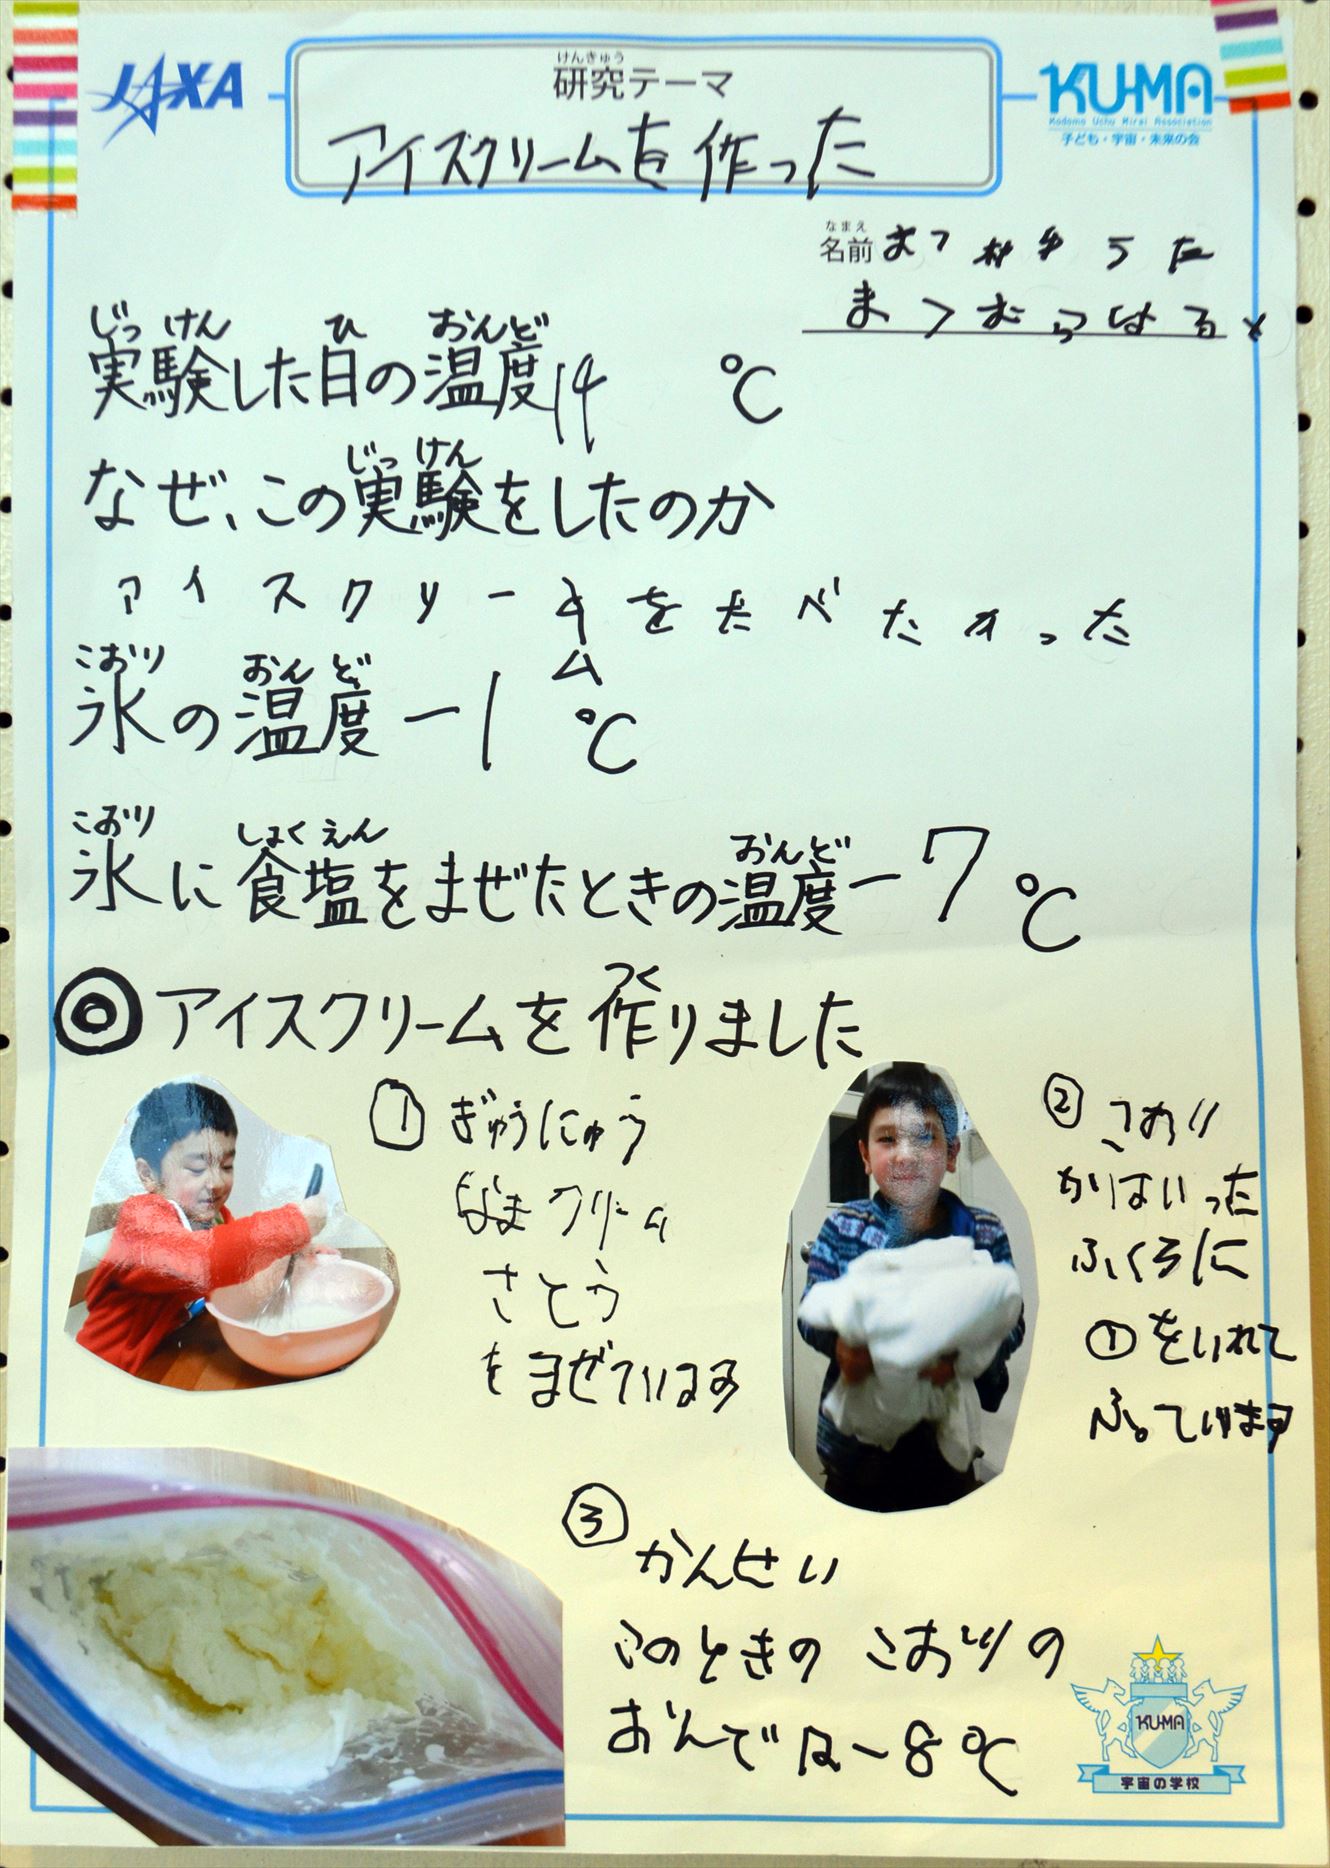 JAXA
けんきゅう
研究テーマ
アイスクリームを作った
KU-MA
Kodomo Uchu Mirai Association
子ども・宇宙・未来の会
なまえ
名前
まつむらはると
じっけん ひ おんど
実験した日の温度14 ℃
じっけん
なぜ、この実験をしたのか
アイスクリー をたべたかった
ム
こおり おんど
氷の温度-1 ℃
こおり しょくえん おんど
氷に食塩をまぜたときの温度-7℃
つく
◎アイスクリームを作りました
① ぎゅうにゅう
なまクリーム
さとう
をまぜています
② こおり
がはいった
ふくろに
①をいれて
ふっています
③ かんせい
このときの こおりの
おんどは-8℃
KU-MA
宇宙の学校